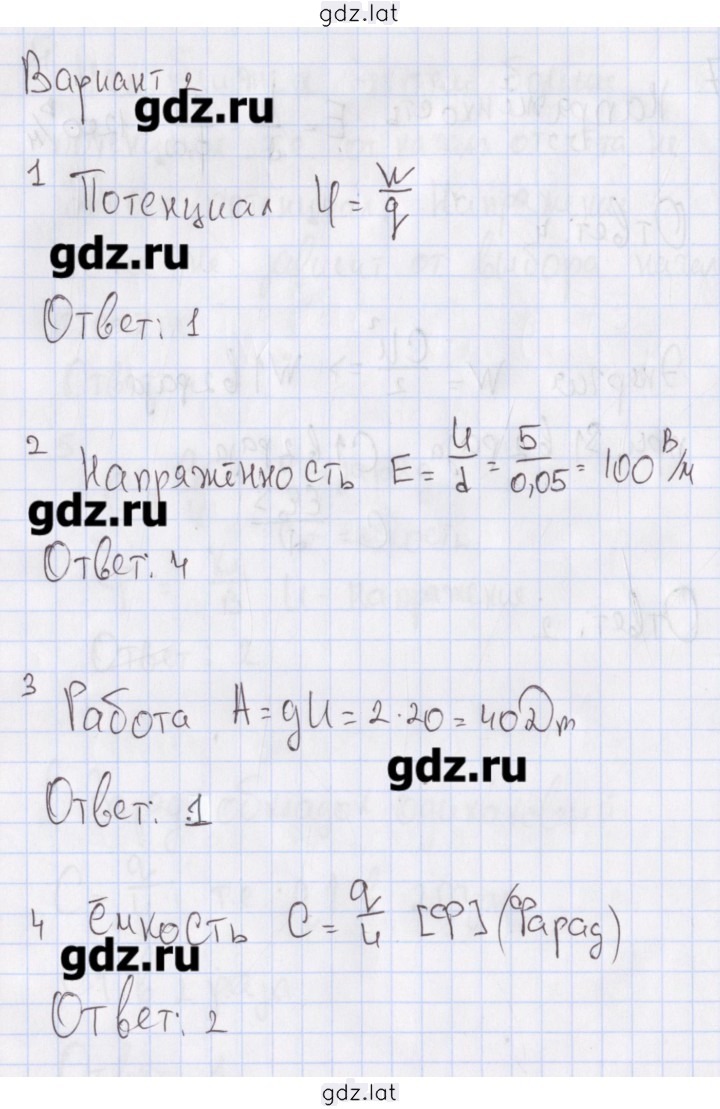 gdz.lat
Вариант 2
gdz.ru
1 Потенциал φ = W/q
gdz.ru
Ответ: 1
2 Напряжённость E = U/d = 5/0,05 = 100 В/м
gdz.ru
Ответ: 4
3 Работа A = qU = 2·20 = 40 Дж
gdz.ru
Ответ: 1
4 ёмкость C = q/U [Ф] (Фарад)
gdz.ru
Ответ: 2
gdz.lat